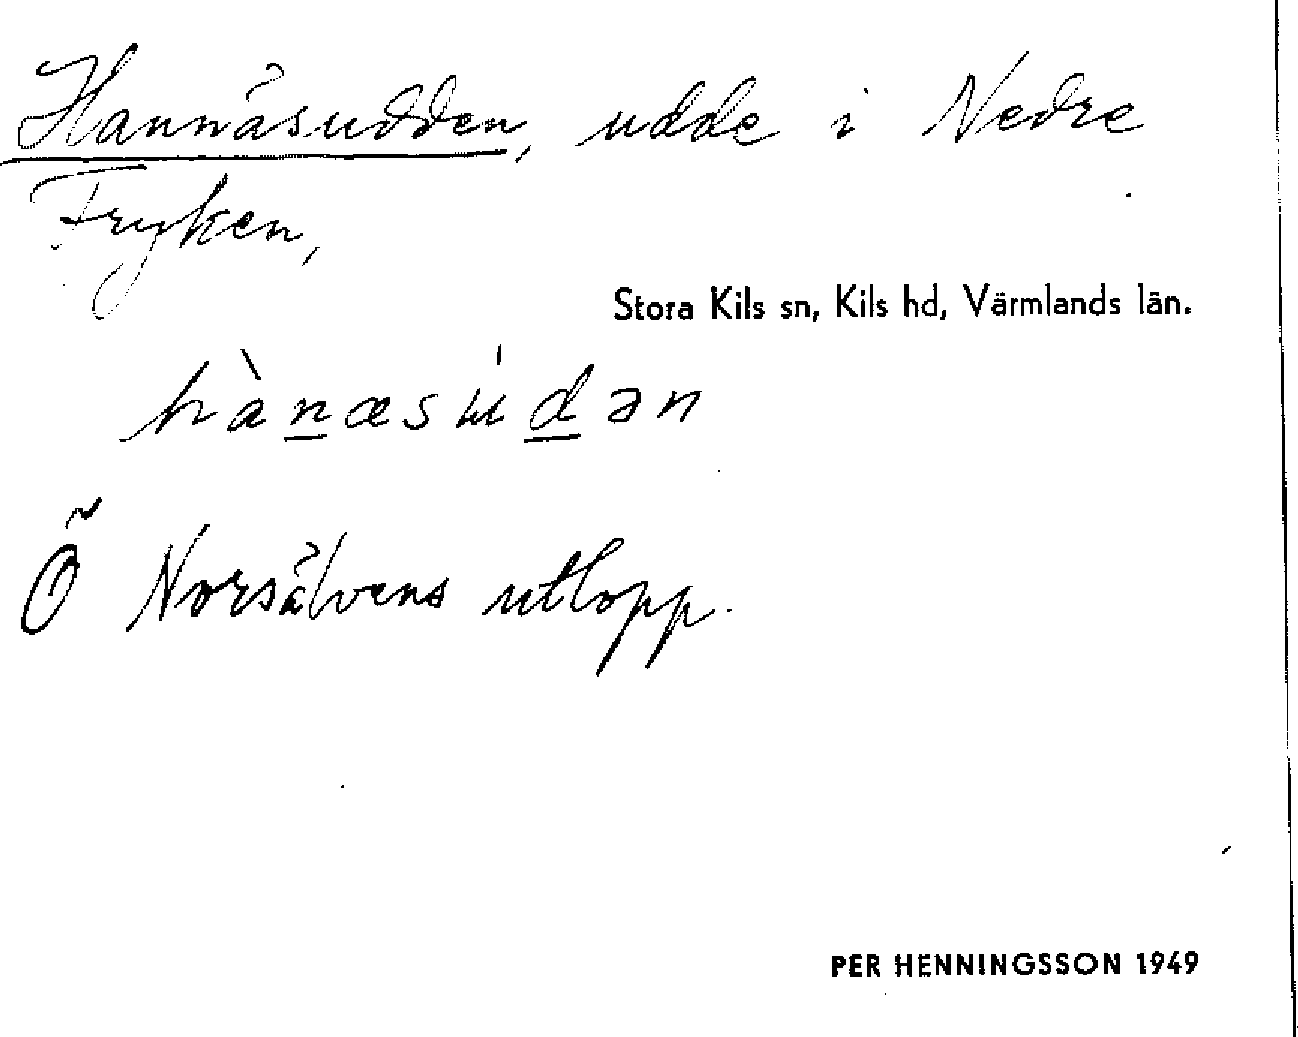 Hannäsudden, udde i Nedre
Fryken,
Stora Kils sn, Kils hd, Värmlands län.
hànæsu̍dən
Ö Norsälvens utlopp.
PER HENNINGSSON 1949